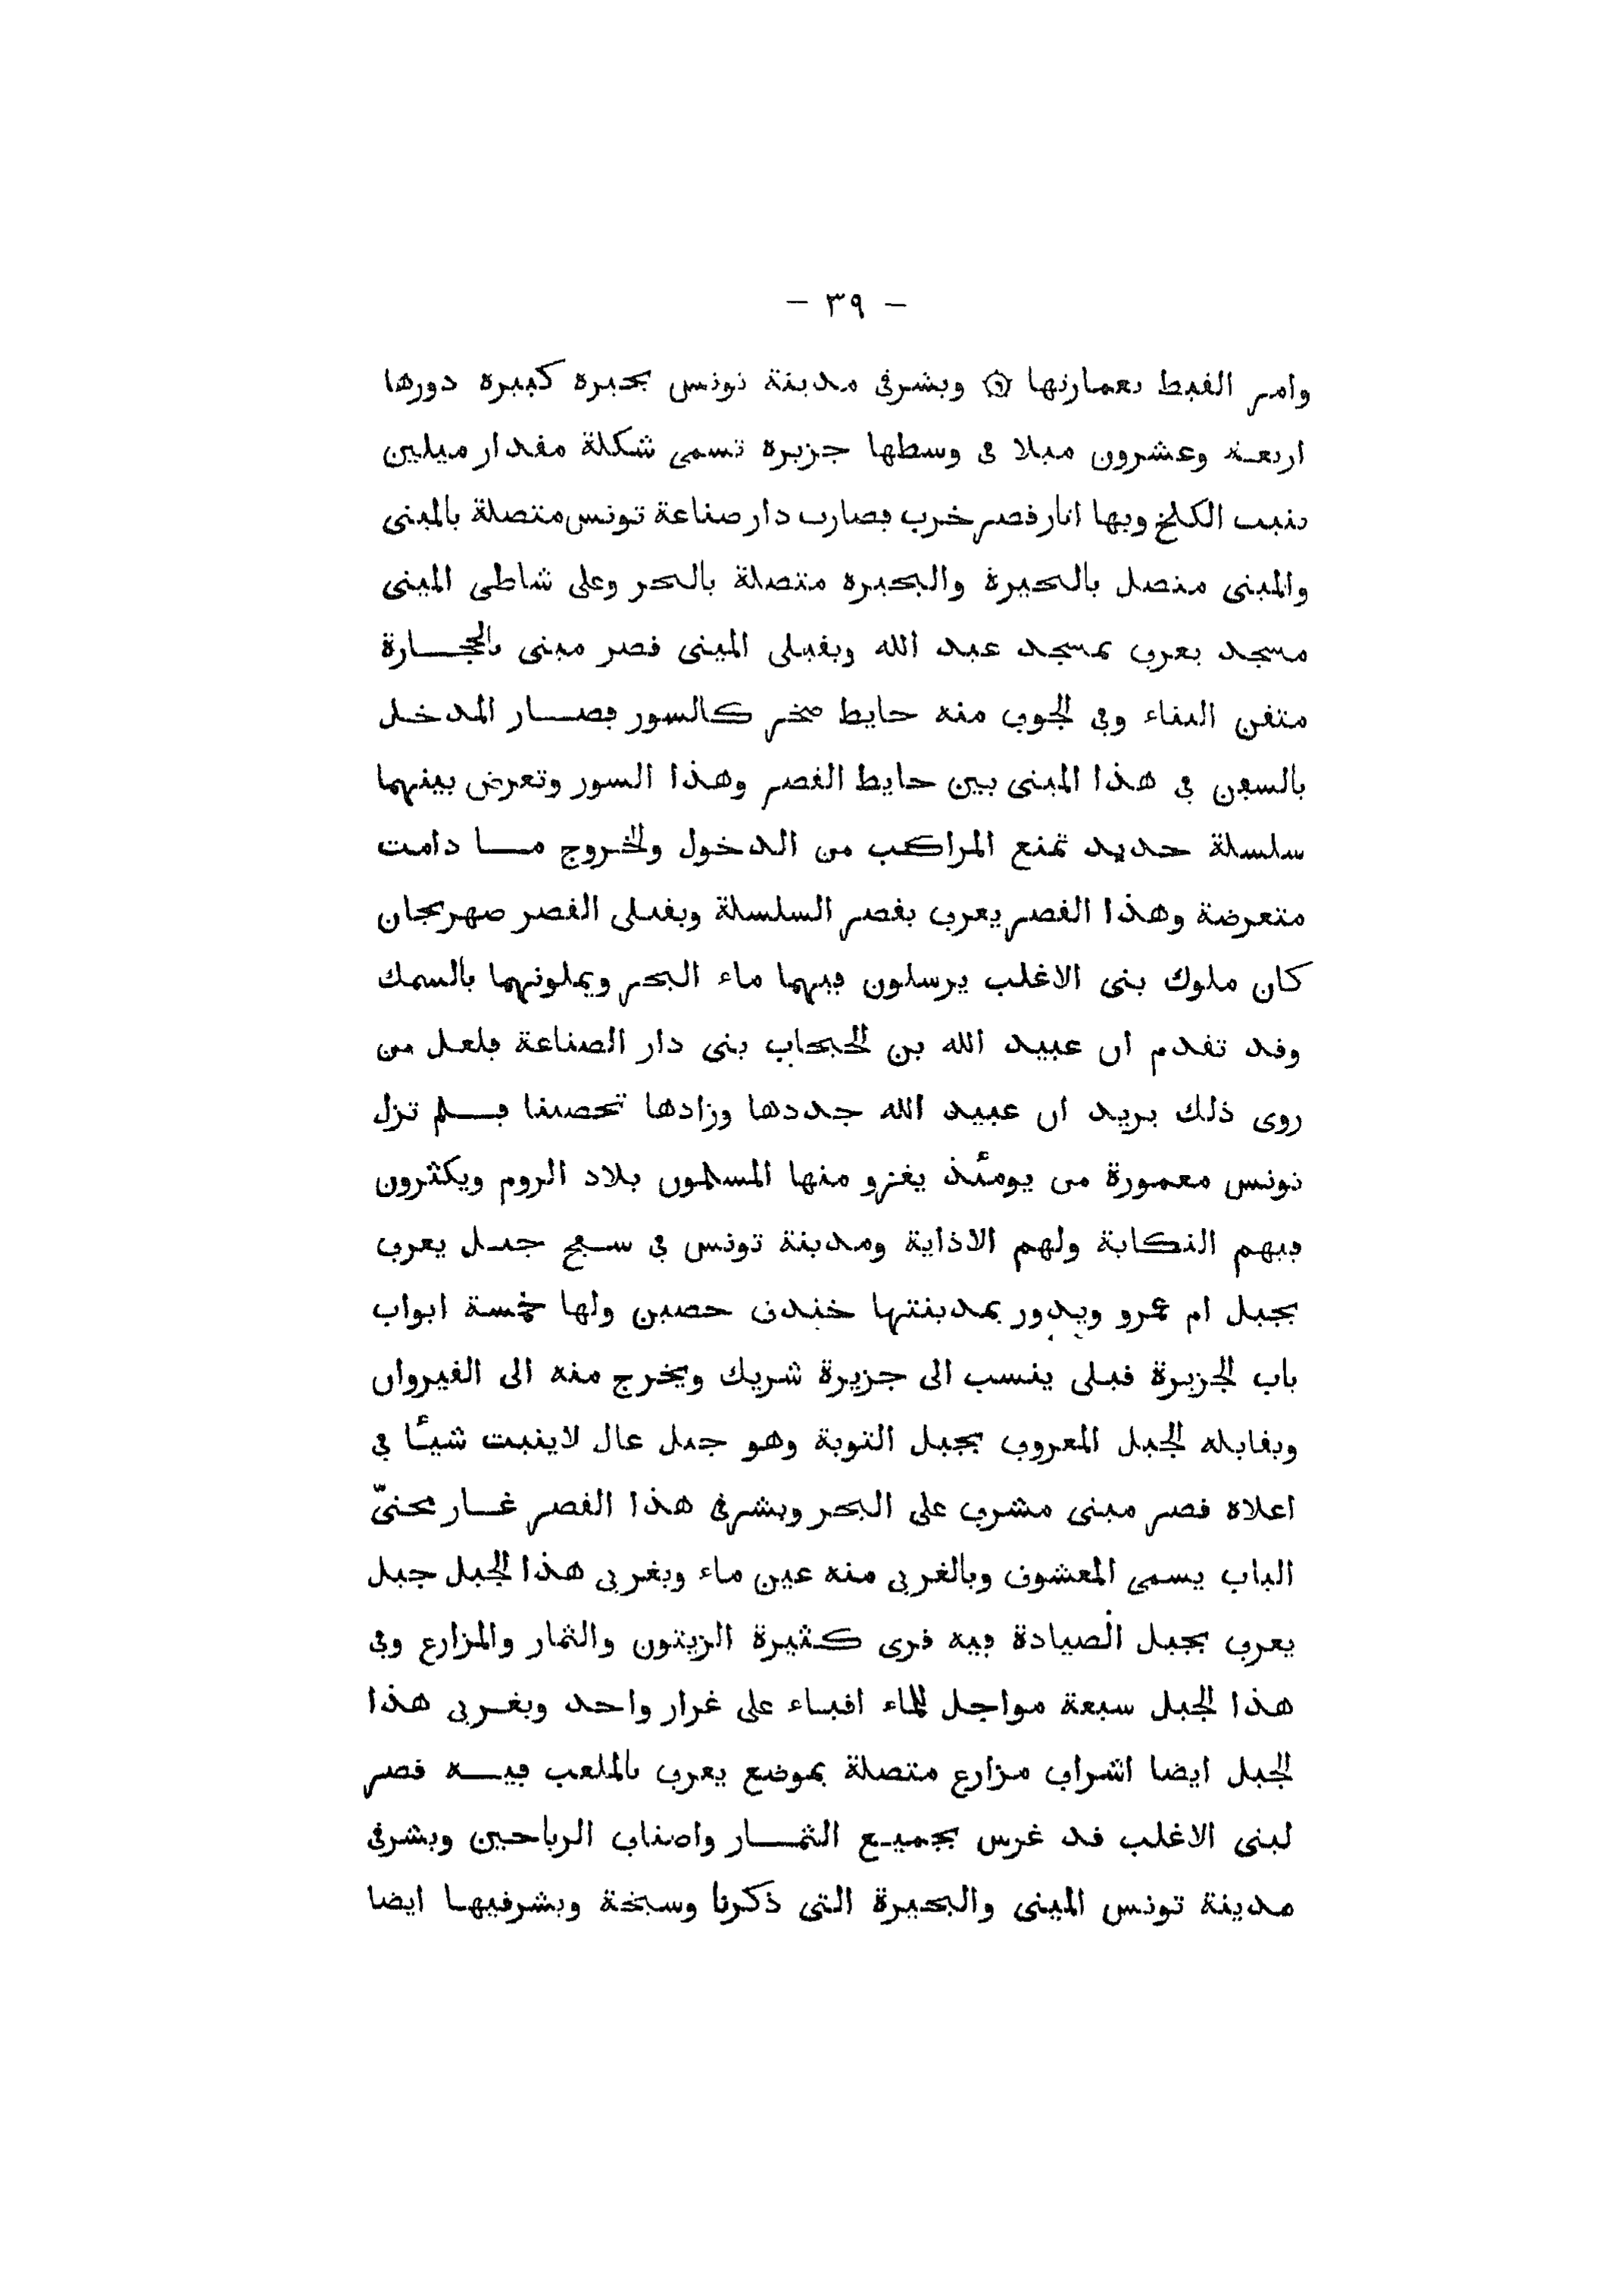 — ٣٩ —
وامر القبط بعمارتها ۞ وبشرقى مدينة تونس بحيرة كبيرة دورها
اربعة وعشرون ميلا فى وسطها جزيرة تسمى شكلة مقدار ميلين
تنبت الكلخ وبها اثار قصر خرب فصارت دار صناعة تونس متصلة بالمينى
والمينى متصل بالبحيرة والبحيرة متصلة بالبحر وعلى شاطى المينى
مسجد يعرف بمسجد عبد الله وبقبلى المينى قصر مبنى بالحجارة
متقن البناء وفى الجوف منه حايط صخر كالسور فصار المدخل
بالسفن فى هذا المينى بين حايط القصر وهذا السور وتعرض بينهما
سلسلة حديد تمنع المراكب من الدخول والخروج ما دامت
متعرضة وهذا القصر يعرف بقصر السلسلة وبقبلى القصر صهريجان
كان ملوك بنى الاغلب يرسلون فيهما ماء البحر ويملونهما بالسمك
وقد تقدم ان عبيد الله بن الحبحاب بنى دار الصناعة فلعل من
روى ذلك يريد ان عبيد الله جددها وزادها تحصينا فلم تزل
تونس معمورة من يومئذ يغزو منها المسلمون بلاد الروم ويكثرون
فيهم النكاية ولهم الاذاية ومدينة تونس فى سفح جبل يعرف
بجبل ام عمرو ويدور بمدينتها خندق حصين ولها خمسة ابواب
باب الجزيرة قبلى ينسب الى جزيرة شريك ويخرج منه الى القيروان
ويقابله الجبل المعروف بجبل التوبة وهو جبل عال لاينبت شيئًا فى
اعلاه قصر مبنى مشرف على البحر وبشرقى هذا القصر غار محنىّ
الباب يسمى المعشوق وبالغربى منه عين ماء وبغربى هذا الجبل جبل
يعرف بجبل الصيادة فيه قرى كثيرة الزيتون والثمار والمزارع وفى
هذا الجبل سبعة مواجل للماء اقباء على غرار واحد وبغربى هذا
الجبل ايضا اشراف مزارع متصلة بموضع يعرف بالملعب فيه قصر
لبنى الاغلب قد غرس بجميع الثمار واصناف الرياحين وبشرقى
مدينة تونس المينى والبحيرة التى ذكرنا وسبخة وبشرقيها ايضا